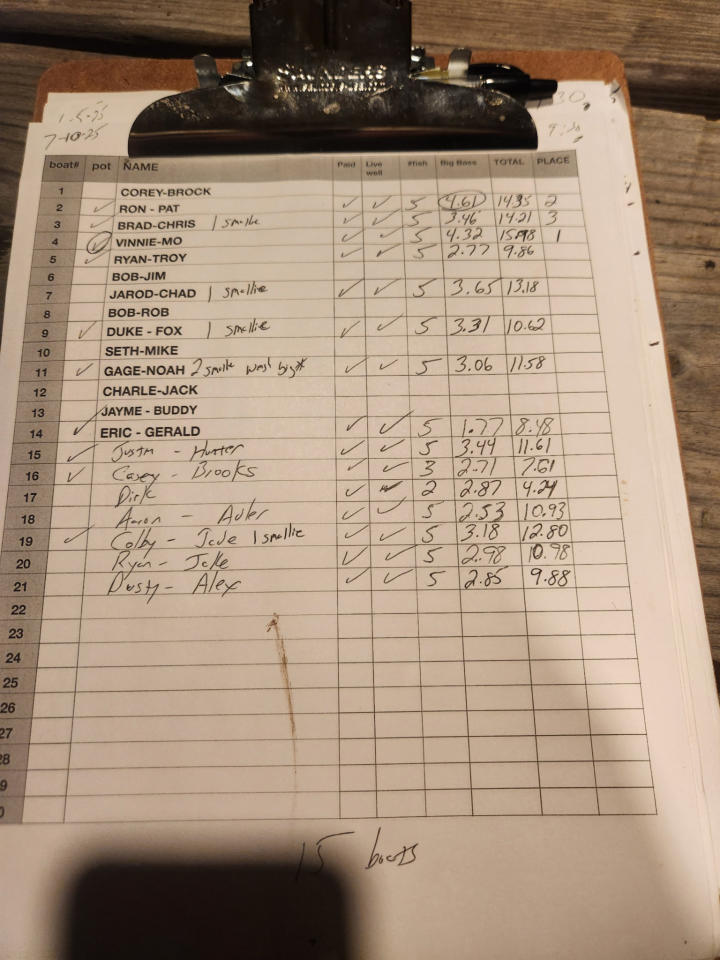 7-10-25
boat# pot NAME Paid Live well #fish Big Bass TOTAL PLACE
1 COREY-BROCK
2 ✓ RON - PAT ✓ ✓ 5 4.61 14.35 2
3 ✓ BRAD-CHRIS 1 smallie ✓ ✓ 5 3.46 14.21 3
4 ✓ VINNIE-MO ✓ ✓ 5 4.32 1
5 ✓ RYAN-TROY ✓ ✓ 5 2.77 9.86
6 BOB-JIM
7 JAROD-CHAD 1 smallie ✓ ✓ 5 3.65 13.18
8 BOB-ROB
9 ✓ DUKE - FOX 1 smallie ✓ ✓ 5 3.31 10.62
10 SETH-MIKE
11 ✓ GAGE-NOAH 2 smallie ✓ ✓ 5 3.06 11.58
12 CHARLE-JACK
13 JAYME - BUDDY
14 ✓ ERIC - GERALD ✓ ✓ 5 1.77 8.48
15 ✓ Justin - Hunter ✓ ✓ 5 3.44 11.61
16 ✓ Casey - Brooks ✓ ✓ 3 2.71 7.61
17 Dirk ✓ ✓ 2 2.87 4.24
18 Aaron - Adler ✓ ✓ 5 2.53 10.93
19 ✓ Colby - Jade 1 smallie ✓ ✓ 5 3.18 12.80
20 Ryan - Jake ✓ ✓ 5 2.98 10.98
21 Dusty - Alex ✓ ✓ 5 2.85 9.88
22
23
24
25
26
27
28
15 boats